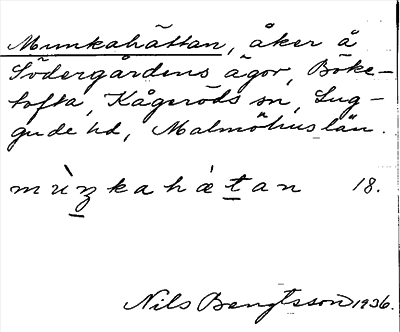 Munkahättan, åker å
Södergårdens ägor, Böke-
tofta, Kågeröds sn, Lug-
gude hd, Malmöhus län.
mùŋkahátan 18.
Nils Bengtsson 1936.